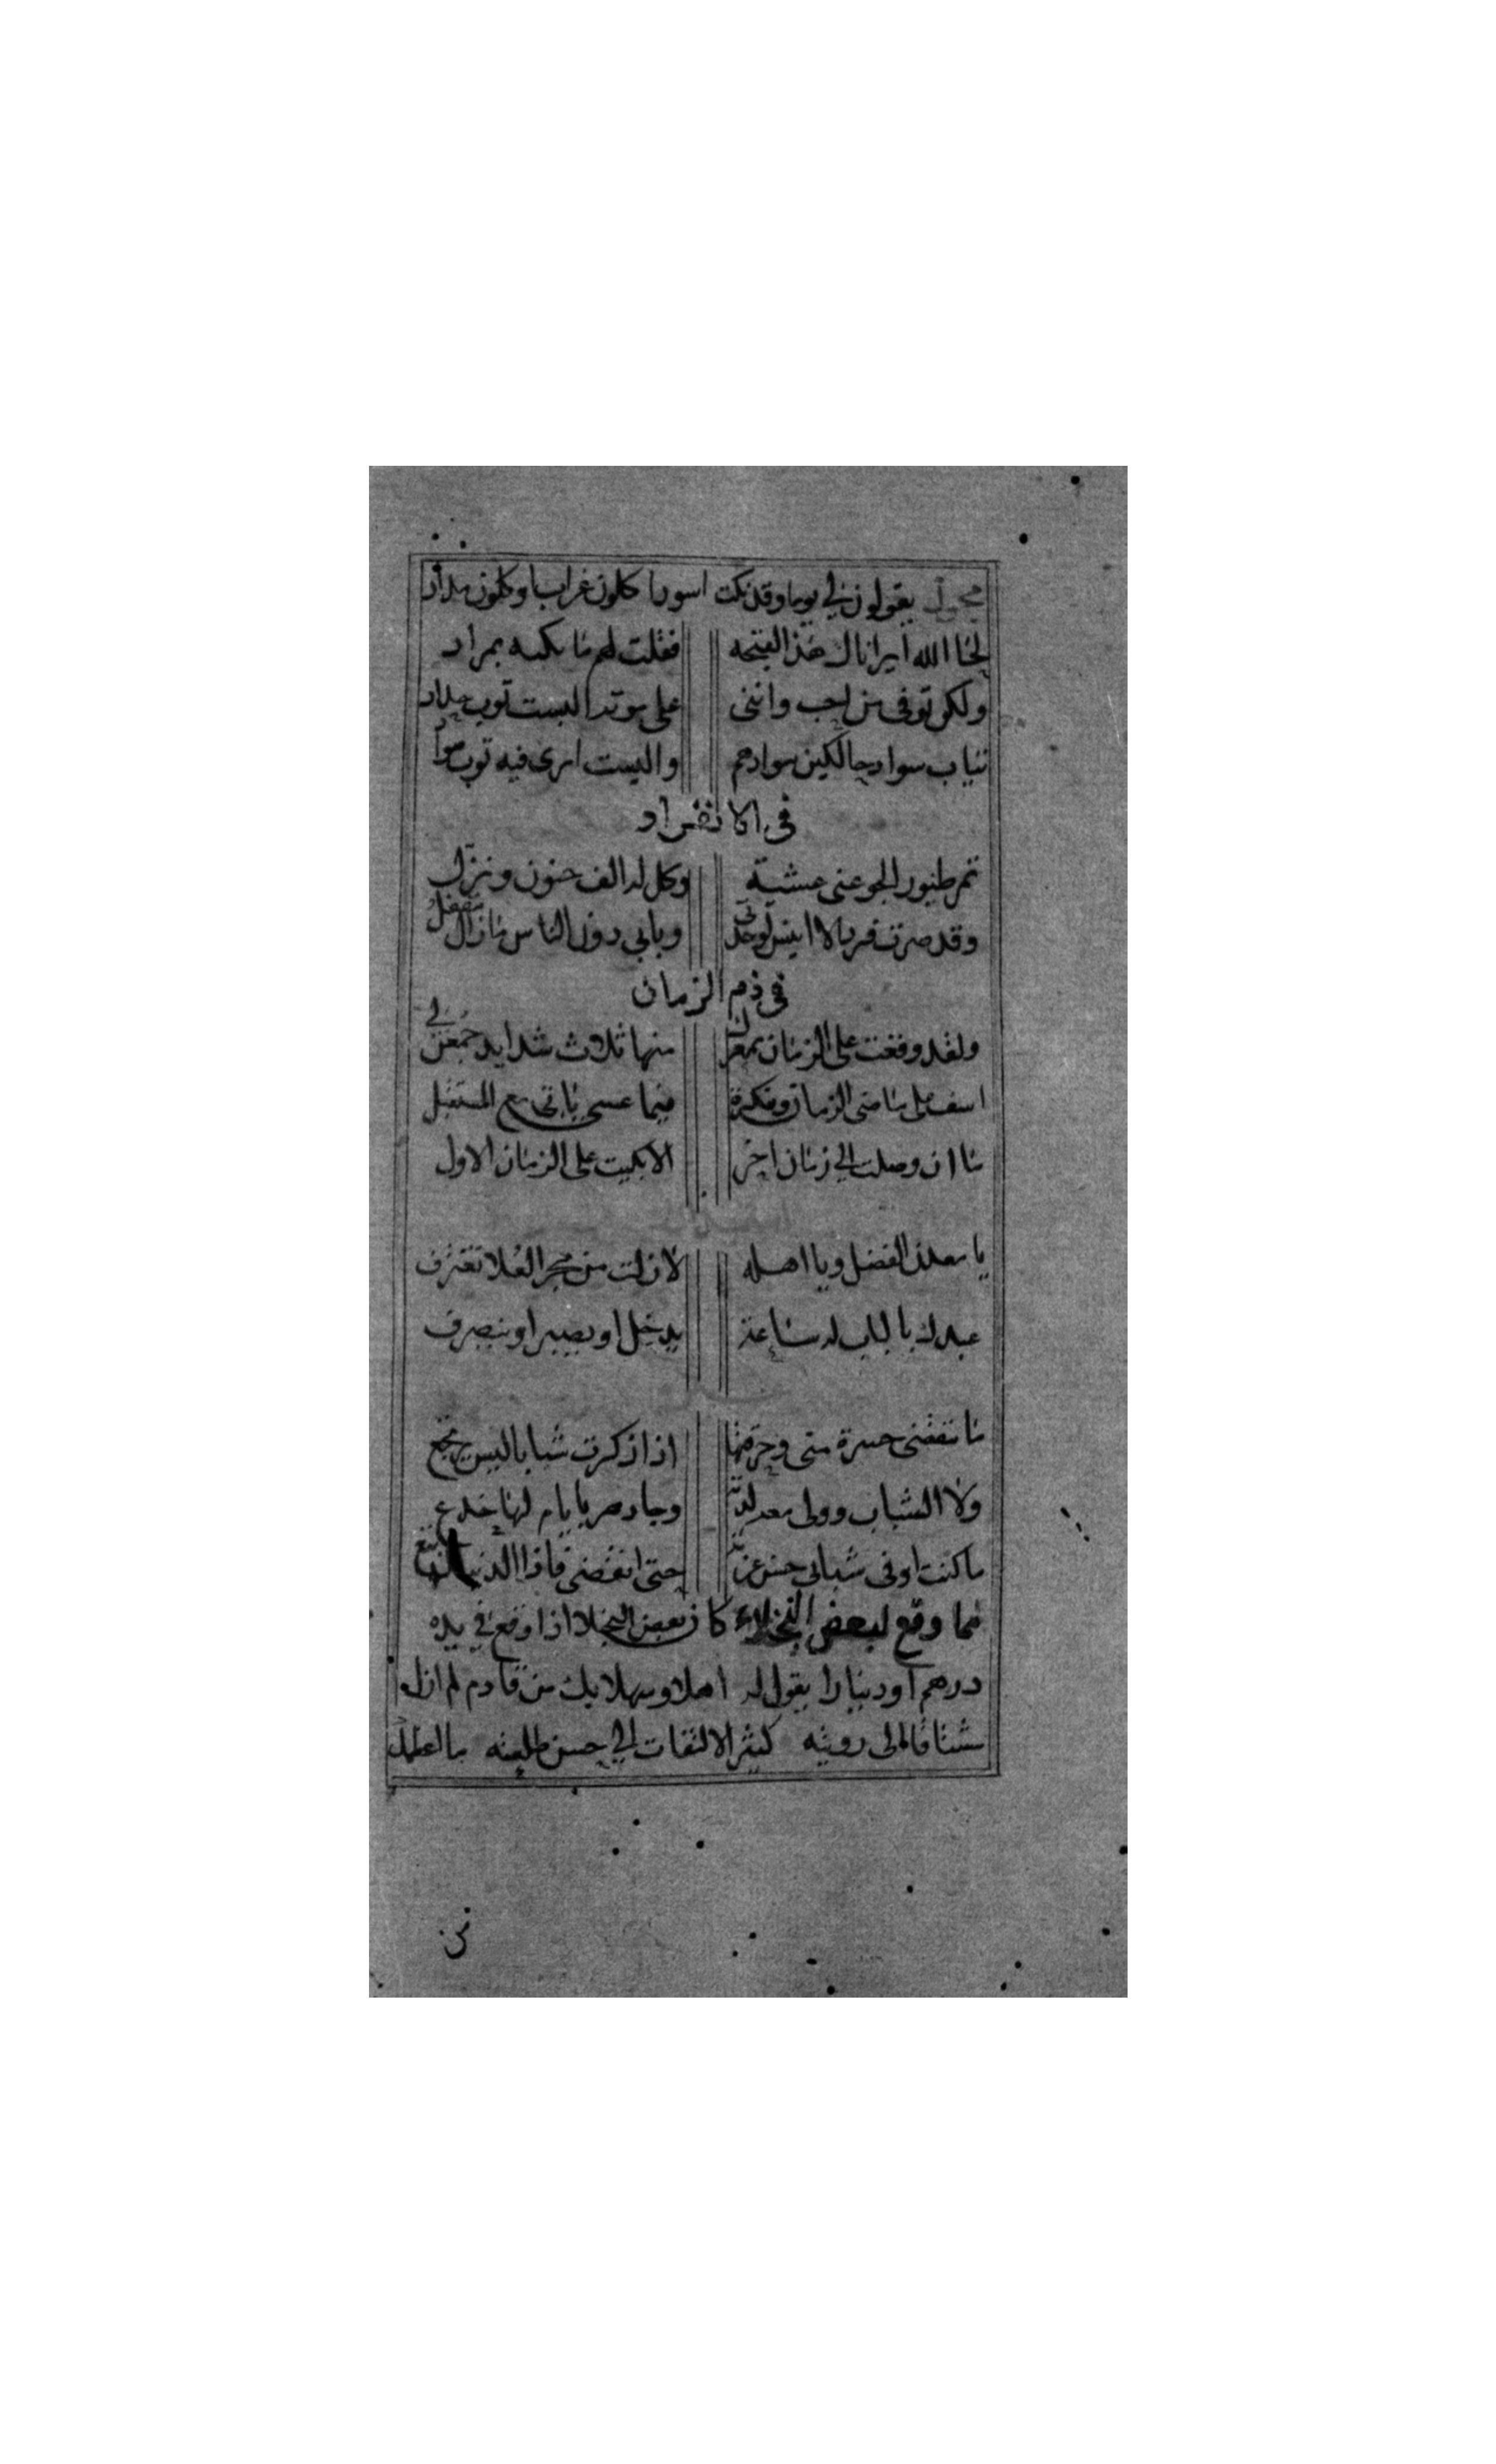 يقولون لي يوما وقد كنت اسودا كلون غراب او كلون مداد
لحا الله ايرا ناك هذ القبيحه فقلت لهم ما نكته بمراد
ولكن توفى من احب وانني على موته البست ثوب حداد
ثياب سواد حالكين سوادهم واليست ايرى فيه ثوب سواد
في الانفراد
تمر طيور الجو عني عشية وكل له الف حنون ومنزل
وقد صرت فردا لا انيس لوحدتي وبابي دون الناس مازال مقفل
في ذم الزمان
ولقد وقفت على الزمان بمعرك منها ثلاث شدايد جمعن لي
اسف على ما مضى الزمان وفكرة فيما عسى ياتي مع المستقبل
ما ان وصلت الي زمان اخر الا بكيت على الزمان الاول
يا معدن الفضل ويا اهله لا زلت من بحر العلا تغترف
عبدك بالباب له ساعة يدخل او يصبر او ينصرف
ما تنقضى حسرة منى وحرقتها اذا ذكرت شبابا ليس يرتجع
ولا الشباب وولى بعد لذته وجاد دهر بايام لها خدع
ما كنت اوفى شبابى حسن عزته حتى انقضى فاذا الدنيا له تبع
مما وقع لبعض البخلاء كان بعض البخلا اذا وقع في يده
درهم او دينارا يقول له اهلا وسهلا بك من قادم لم ازل
مشتاقا الى رويته كثير الالتفات الي حسن طلعته